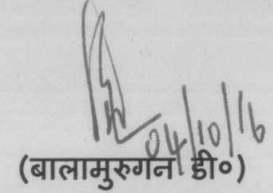 04/10/16
(बालामुरुगन डी०)